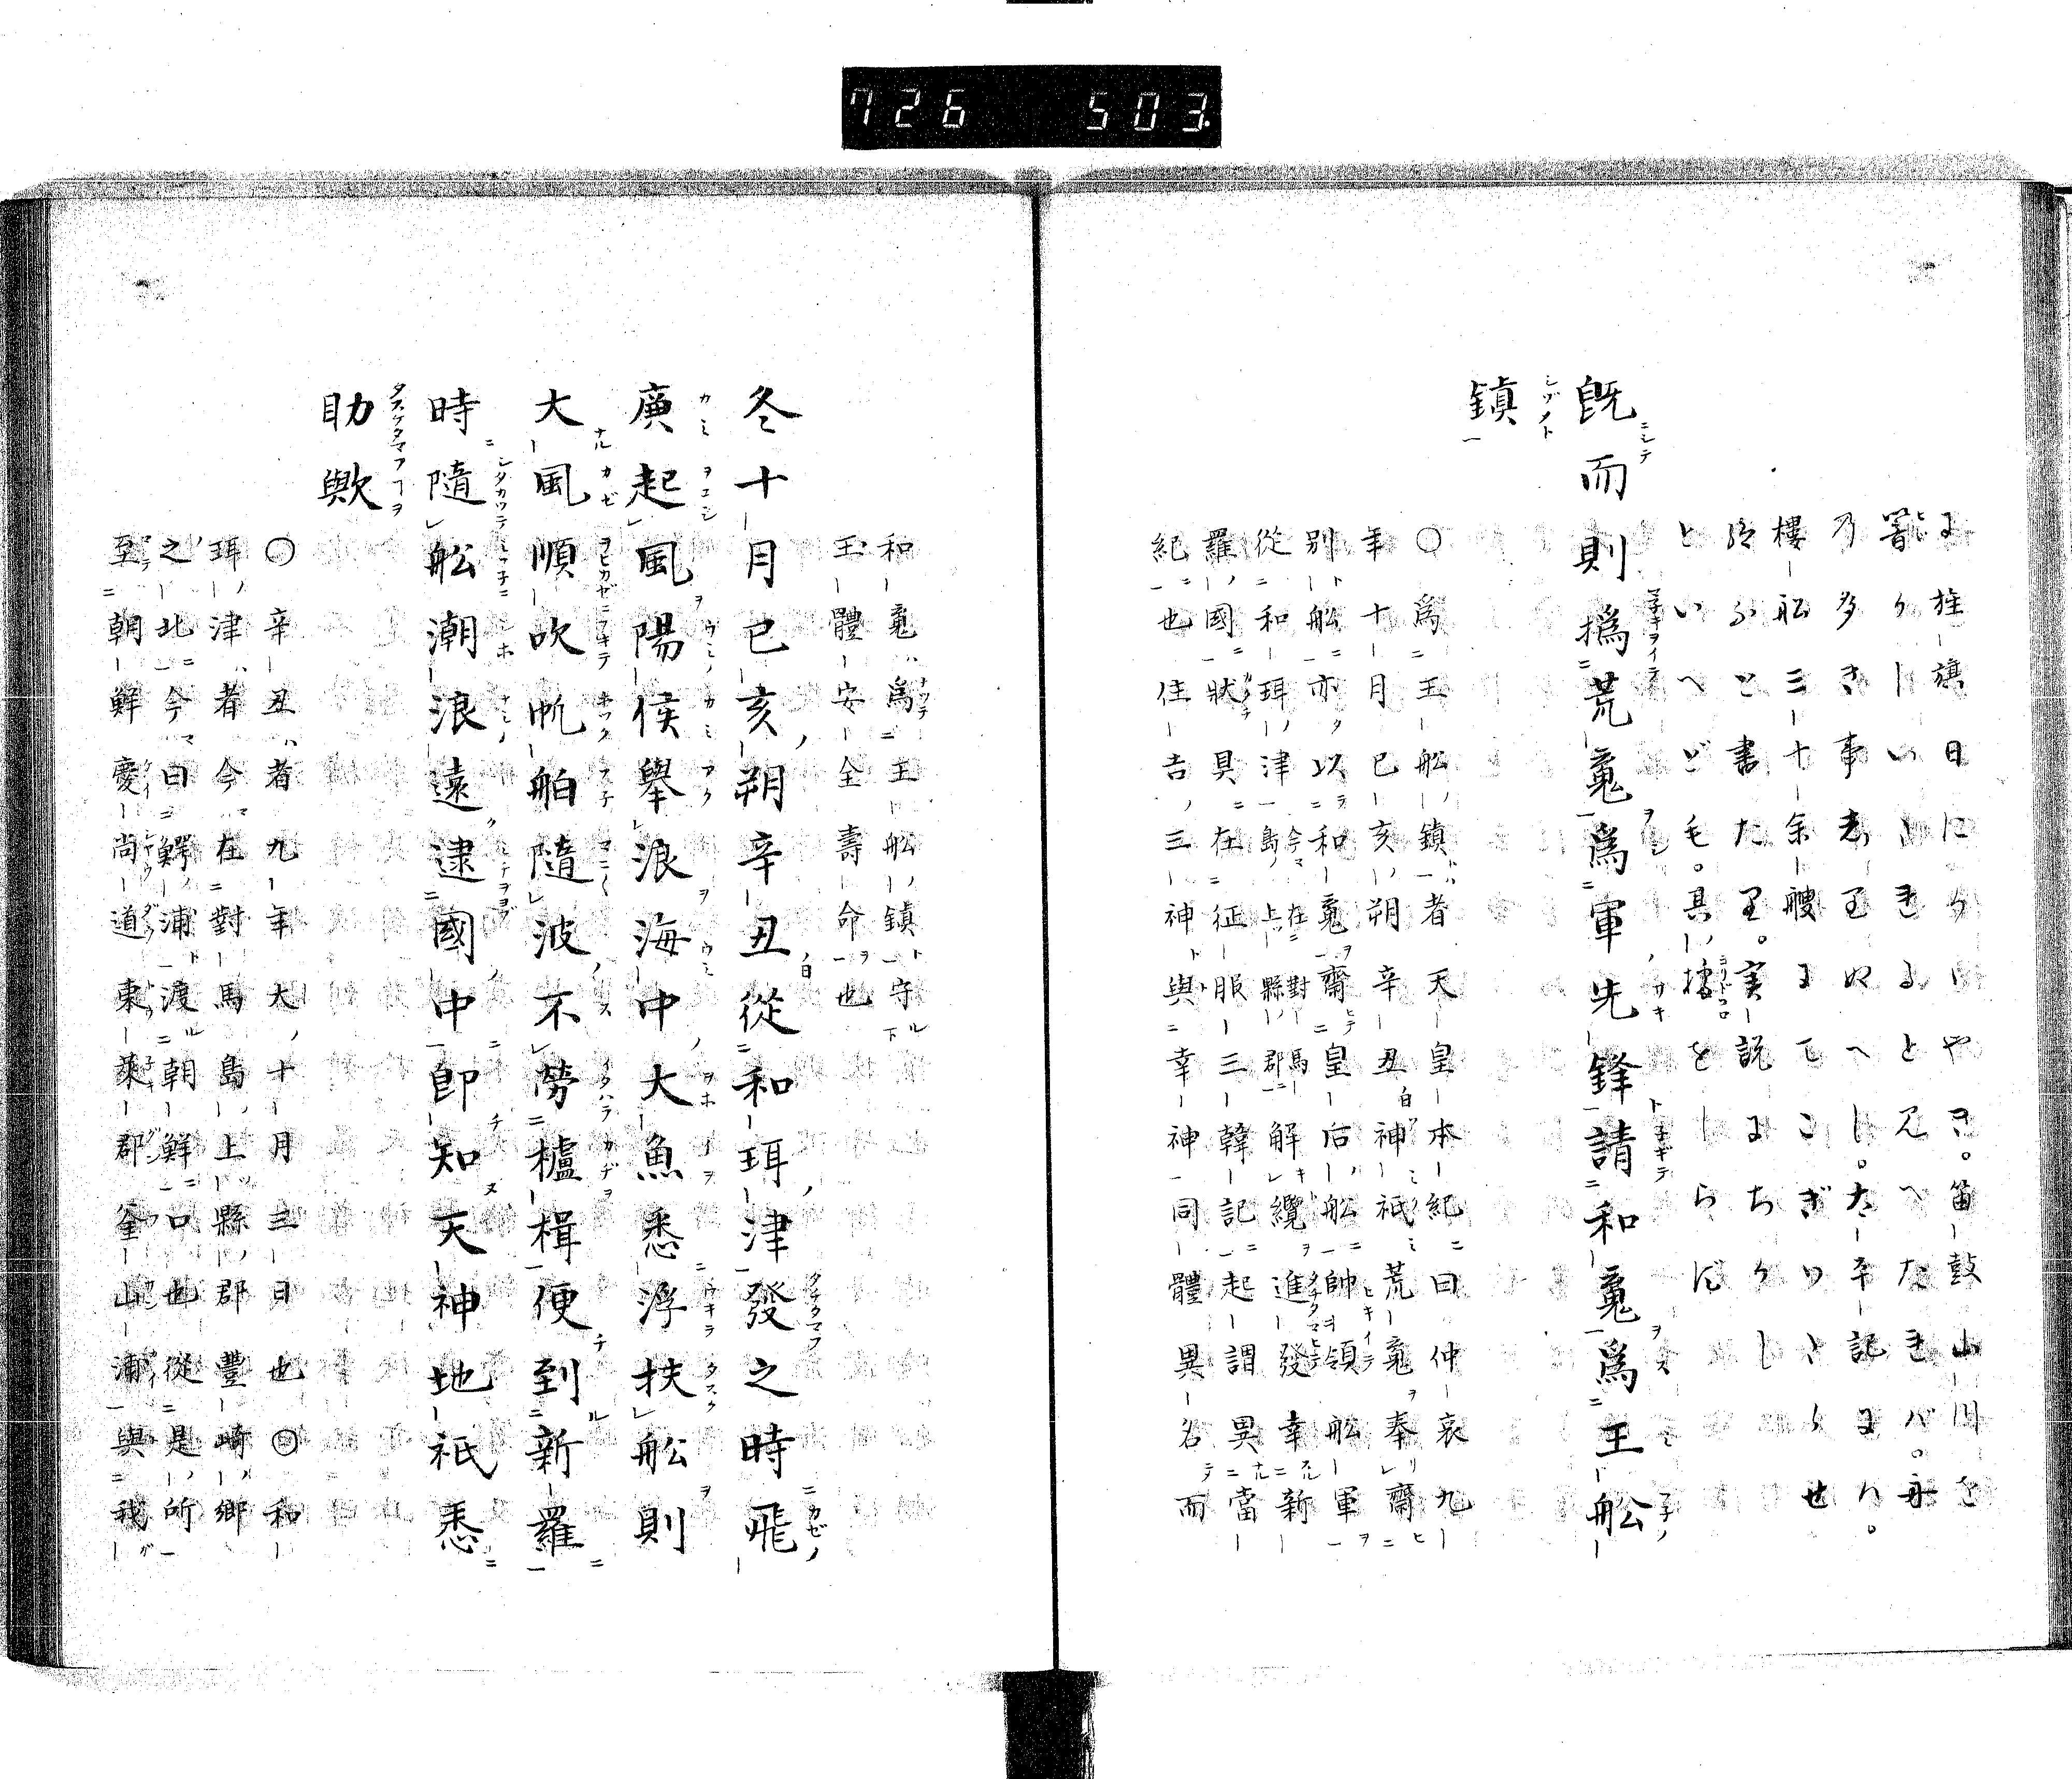 726 503
に旌旗日にかゝやき。笛鼓山川を
響かしいときるとみへたきバ。舟
乃多き事志るぬへし。太平記にハ。
樓船三十余艘にてこぎわたらせ
給ふと書たり。実説にちかし
といへども。其據をしらず
既而則撝荒䰟爲軍先鋒請和䰟爲王舩
鎮
〇爲王舩鎮者天皇本紀曰仲哀九
年十月己亥朔辛丑神祇荒䰟奉齋
別舩亦以和䰟齋皇后舩帥領舩軍
從和珥津今在對馬島上縣郡解纜進發幸新
羅國狀具在征服三韓記起謂異當
紀也住吉三神與幸神同體異名而
和䰟爲王舩鎮守
玉體安全壽命也
冬十月己亥朔辛丑從和珥津發之時飛
廉起風陽侯舉浪海中大魚悉浮扶舩則
大風順吹帆舶隨波不勞櫨楫便到新羅
時隨舩潮浪遠逮國中即知天神地祇悉
助歟
〇辛丑者九年大十月三日也〇和
珥津者今在對馬島上縣郡豐崎郷
之北今曰鰐浦渡朝鮮口也從是所
至朝鮮慶尚道東萊郡釜山浦與我